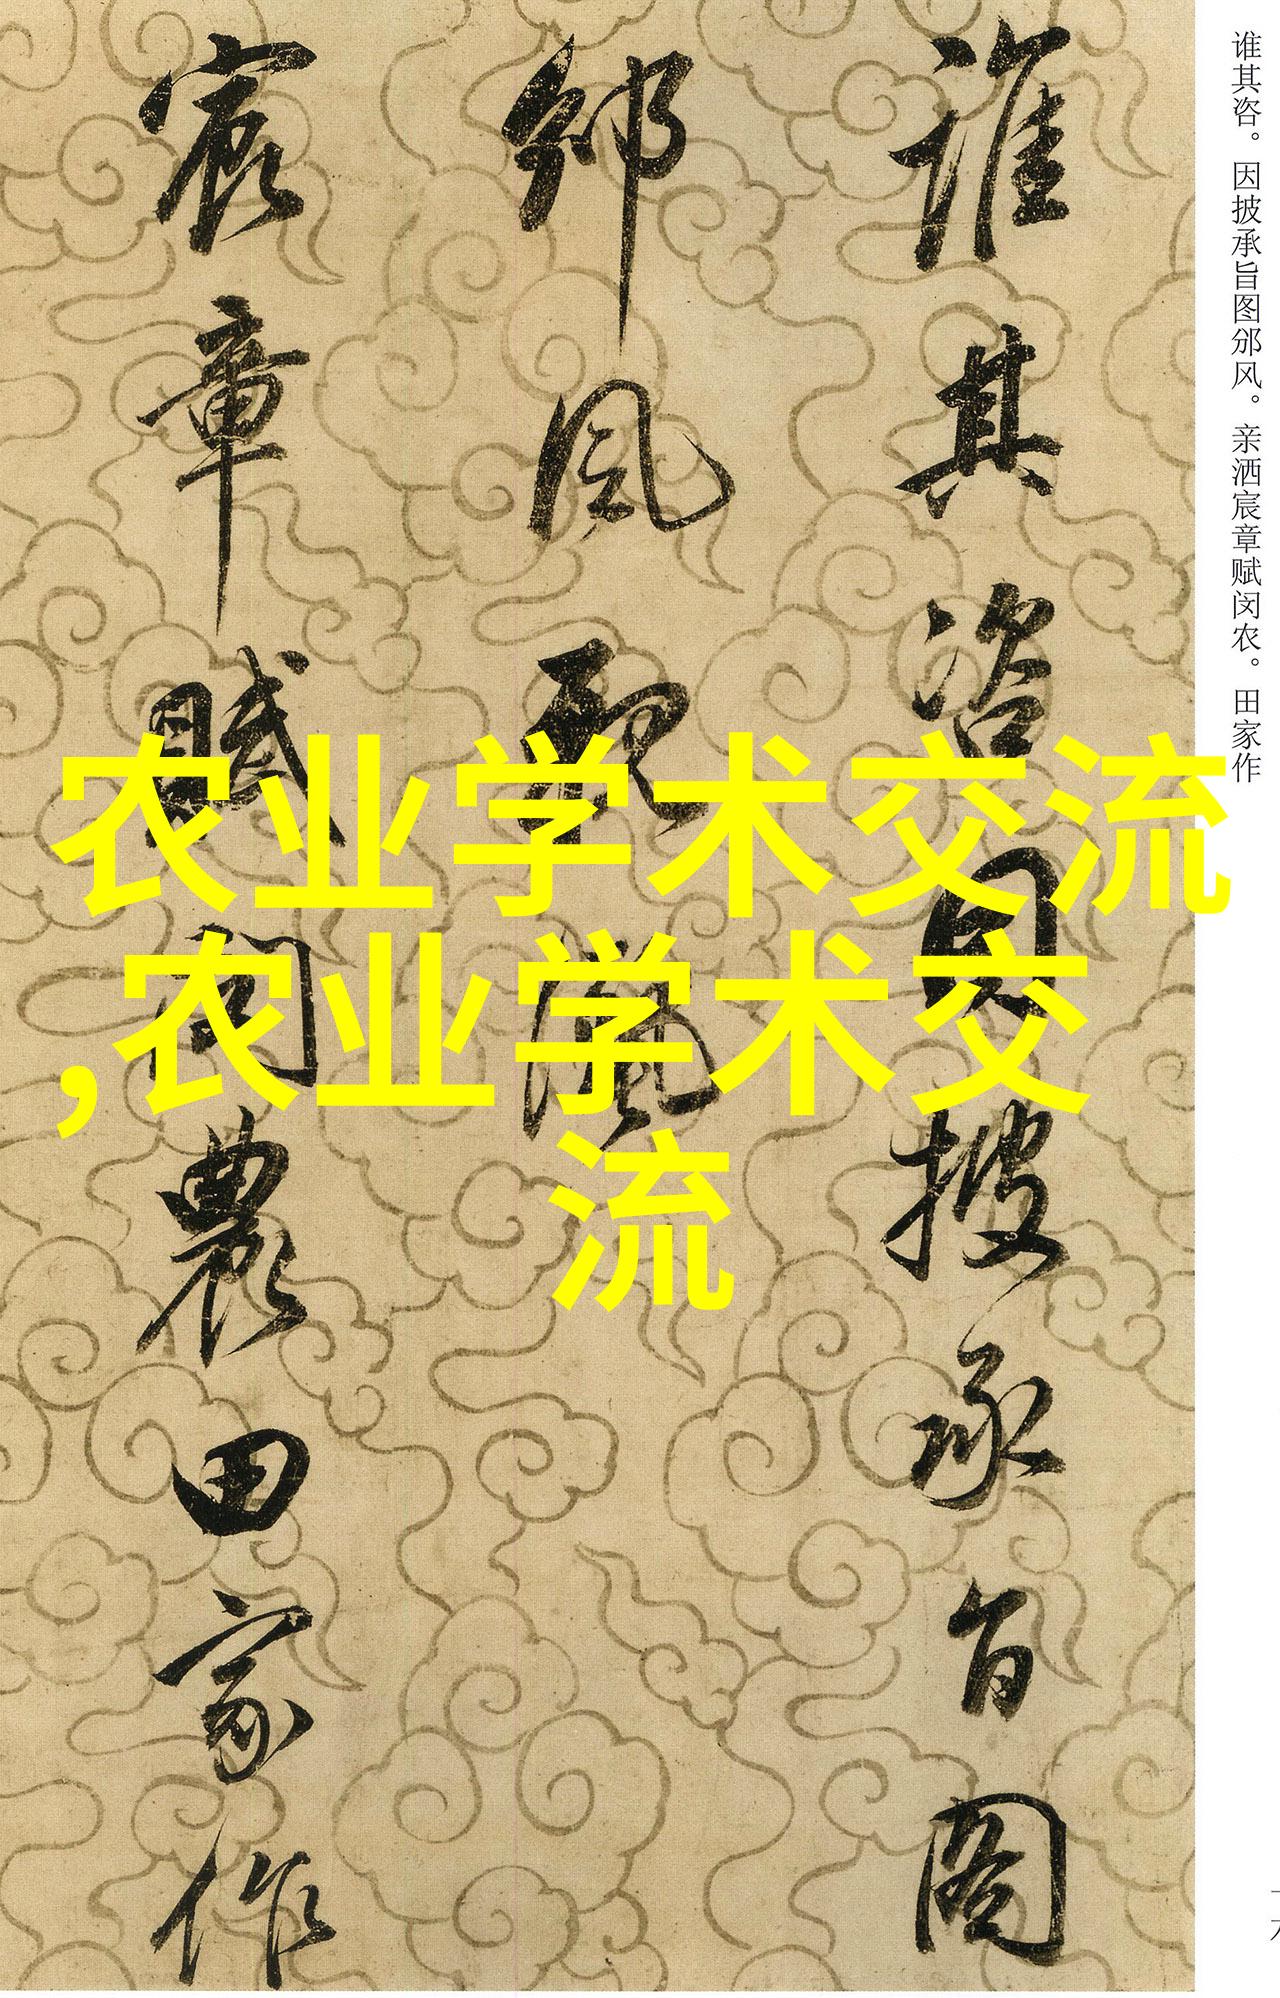 谁其咨。因披承旨图邠风。亲洒宸章赋闵农。田家作
誰其咨因披承旨圖
邠風親灑
宸章賦閔農田家作
农业学术交流
,农业学术交
流